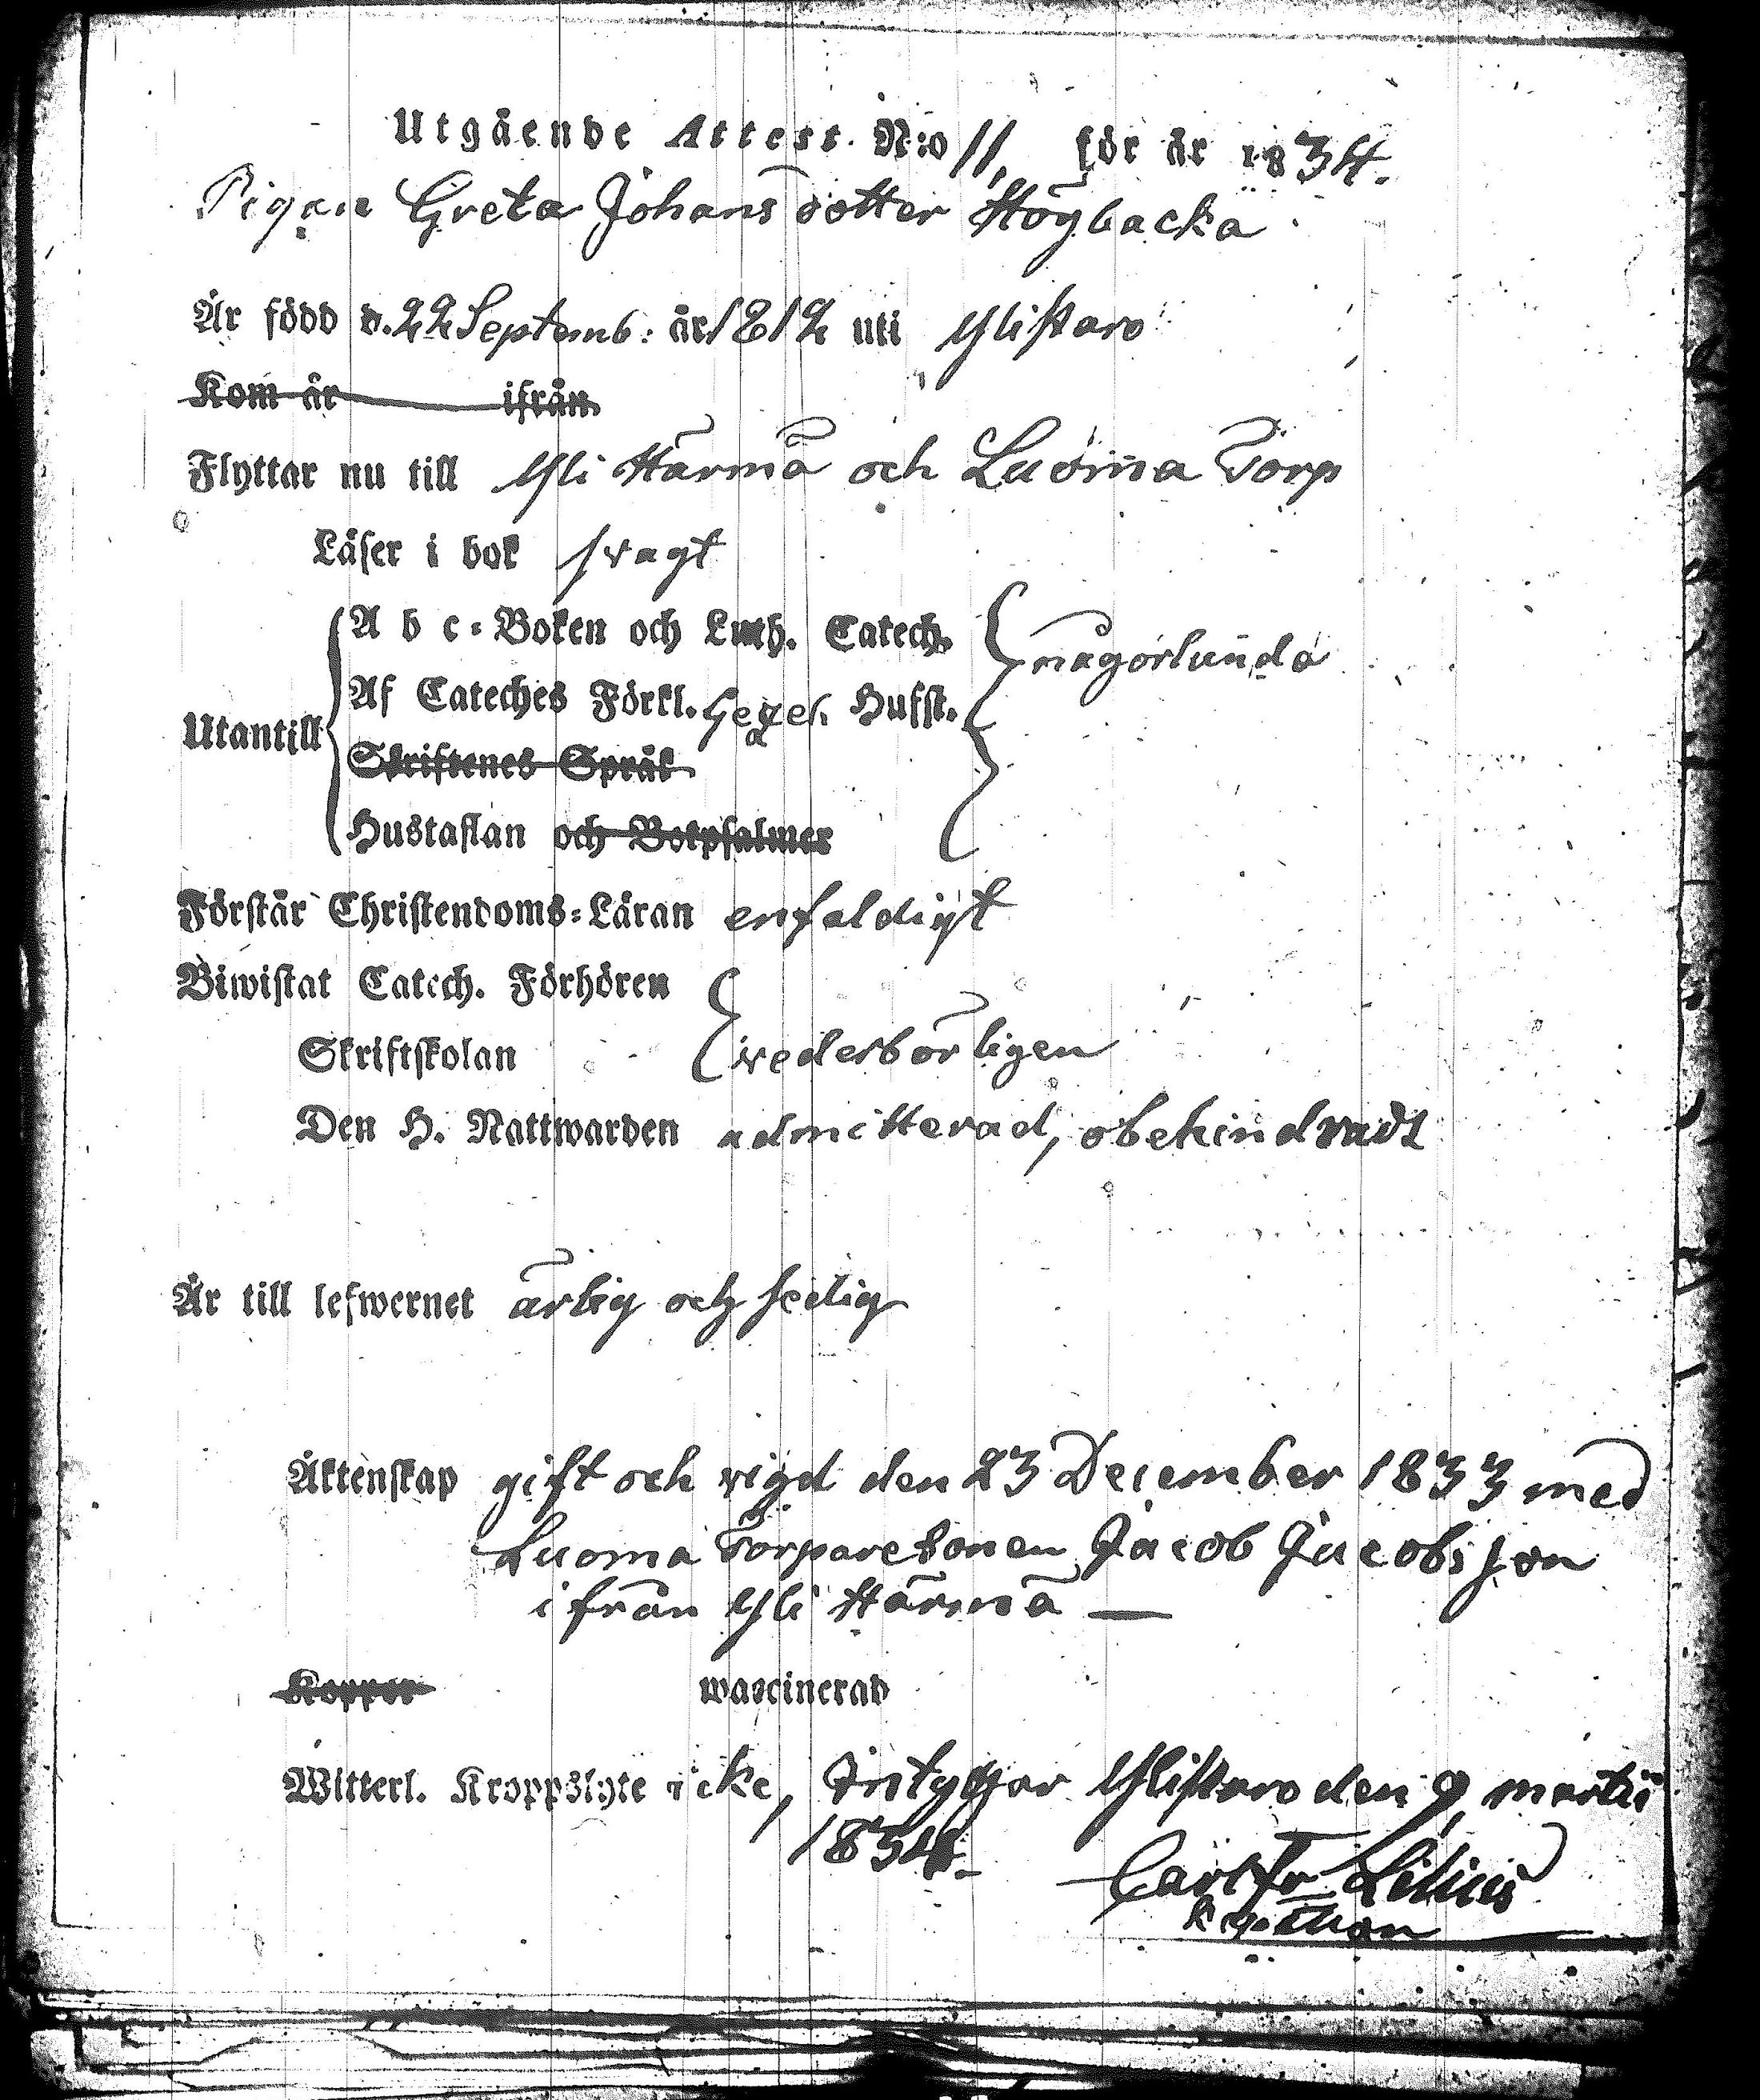 Utgående Attest. N:o 11, för år 1834.
Pigan Greta Johansdotter Högbacka
Är född d. 22 Septemb: år 1812 uti Ylistaro
Kom år ifrån
Flyttar nu till Yli Härmä och Luoma Torp
Läser i bok svagt
A b c-Boken och Luth. Catech. någorlunda
Af Cateches Förkl. Husst.
Utantill
Skriftenes Språk
Hustaflan och Botpsalmer
Förstår Christendoms-Läran enfaldigt
Biwistat Catech. Förhören
Skriftskolan vederbörligen
Den H. Nattwarden admitterad, obehindradt
Är till lefwernet ärlig och sedig
Äktenskap gift och vigd den 23 December 1833 med
Luoma Torparesonen Jacob Jacobsson
ifrån Yli Härmä —
Koppor waccinerad
Witterl. Kroppslyte icke, Intygar Ylistaro den 9 martii
1834.
Carl Fr Lilius